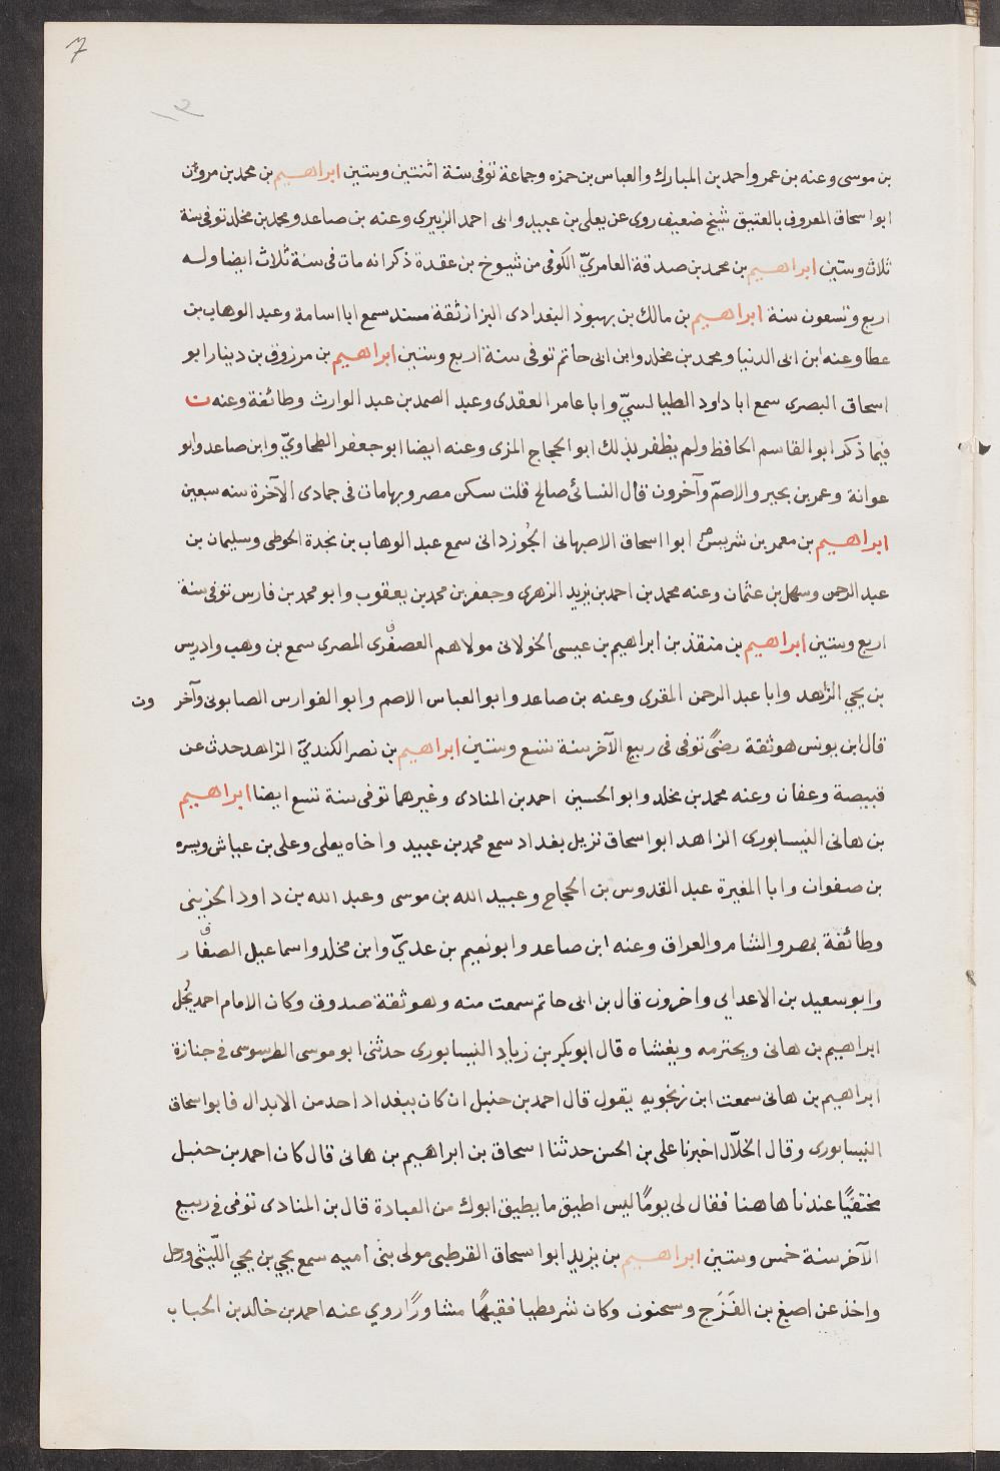 7
١٣
بن موسى وعنه بن عمر واحمد بن المبارك والعباس بن حمزه وجماعة توفى سنة اثنتين وستين ابراهيم بن محمد بن مروان
ابو اسحاق المعروف بالعتيق شيخ ضعيف روى عن يعلى بن عبيد وابى احمد الزبيرى وعنه بن صاعد ومحمد بن مخلد توفى سنة
ثلاث وستين ابراهيم بن محمد بن صدقة العامريّ الكوفى من شيوخ بن عقدة ذكر انه مات فى سنة ثلاث ايضا وله
اربع وتسعون سنة ابراهيم بن مالك بن بهبوذ البغدادى البزاز ثقة مسند سمع ابا اسامة وعبد الوهاب بن
عطا وعنه ابن ابى الدنيا ومحمد بن مخلد وابن ابى حاتم توفى سنة اربع وستين ابراهيم بن مرزوق بن دينار ابو
اسحاق البصرى سمع ابا داود الطيالسيّ وابا عامر العقدى وعبد الصمد بن عبد الوارث وطائفة وعنه ن
فيما ذكر ابو القاسم الحافظ ولم يظفر بذلك ابو الحجاج المزى وعنه ايضا ابو جعفر الطحاويّ وابن صاعد وابو
عوانة وعمر بن بجير والاصمّ وآخرون قال النسائى صالح قلت سكن مصر وبها مات فى جمادى الآخرة سنه سبعين
ابراهيم بن معمر بن شريس ابو اسحاق الاصبهانى الجُوزدانى سمع عبد الوهاب بن نجدة الحوطى وسليمان بن
عبد الرحمن وسهل بن عثمان وعنه محمد بن احمد بن يزيد الزهرى وجعفر بن محمد بن يعقوب وابو محمد بن فارس توفى سنة
اربع وستين ابراهيم بن منقذ بن ابراهيم بن عيسى الخولانى مولاهم العصفرى المصرى سمع بن وهب وادريس
بن يحيى الزاهد وابا عبد الرحمن المقرى وعنه بن صاعد وابو العباس الاصم وابو الفوارس الصابونى وآخر ون
قال ابن يونس هو ثقة رضىً توفى فى ربيع الآخر سنة تسع وستين ابراهيم بن نصر الكنديّ الزاهد حدث عن
قبيصة وعفان وعنه محمد بن مخلد وابو الحسين احمد بن المنادى وغيرهما توفى سنة تسع ايضا ابراهيم
بن هانى النيسابورى الزاهد ابو اسحاق نزيل بغداد سمع محمد بن عبيد واخاه يعلى وعلى بن عياش ويسره
بن صفوان وابا المغيرة عبد القدوس بن الحجاج وعبيد الله بن موسى وعبد الله بن داود الخريبى
وطائفة بمصر والشام والعراق وعنه ابن صاعد وابو نعيم بن عديّ وابن مخلد واسماعيل الصفار
وابو سعيد بن الاعرابى واخرون قال بن ابى حاتم سمعت منه وهو ثقة صدوق وكان الامام احمد يُجل
ابراهيم بن هانى ويحترمه ويغشاه قال ابو بكر بن زياد النيسابورى حدثنى ابو موسى الطرسوسى فى جنازة
ابراهيم بن هانى سمعت ابن زنجويه يقول قال احمد بن حنبل ان كان ببغداد احد من الابدال فابو اسحاق
النيسابورى وقال الخلّال اخبرنا على بن الحسن حدثنا اسحاق بن ابراهيم بن هانى قال كان احمد بن حنبل
مختفيًا عندنا هاهنا فقال لى يومًا ليس اطيق ما يطيق ابوك من العبادة قال بن المنادى توفى فى ربيع
الآخر سنة خمس وستين ابراهيم بن يزيد ابو اسحاق القرطبى مولى بنى اميه سمع يحيى بن يحيى اللّيثى ورحل
واخذ عن اصبغ بن الفَرَج وسحنون وكان شروطيا فقيهًا مشاورًا روي عنه احمد بن خالد بن الحباب